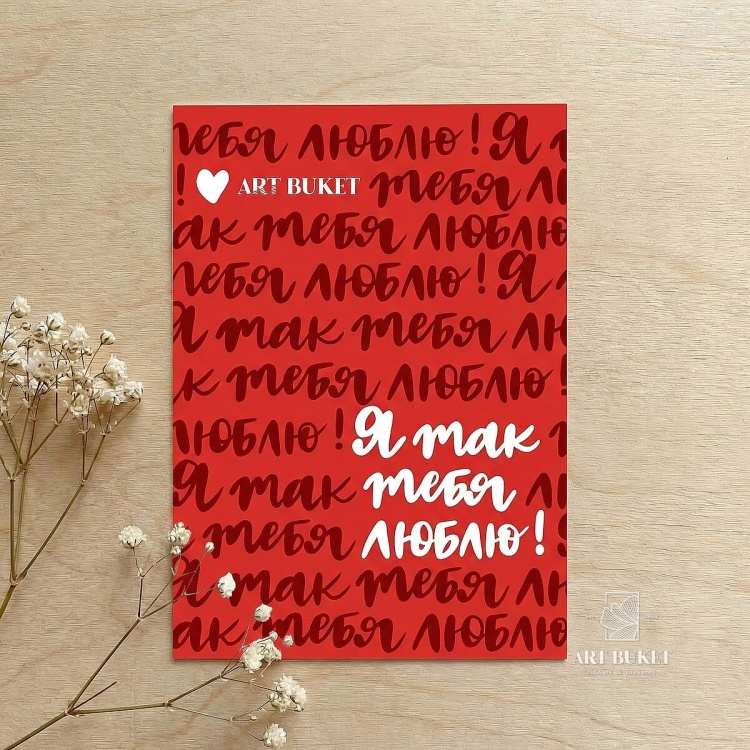 тебя люблю! Я
! ART BUKET тебя лю
так тебя люблю
тебя люблю! Я
Я так тебя лю
ак тебя люблю!
люблю! Я так
Я так тебя лю
тебя люблю!
Я так тебя лю
так тебя люблю
ART BUKET